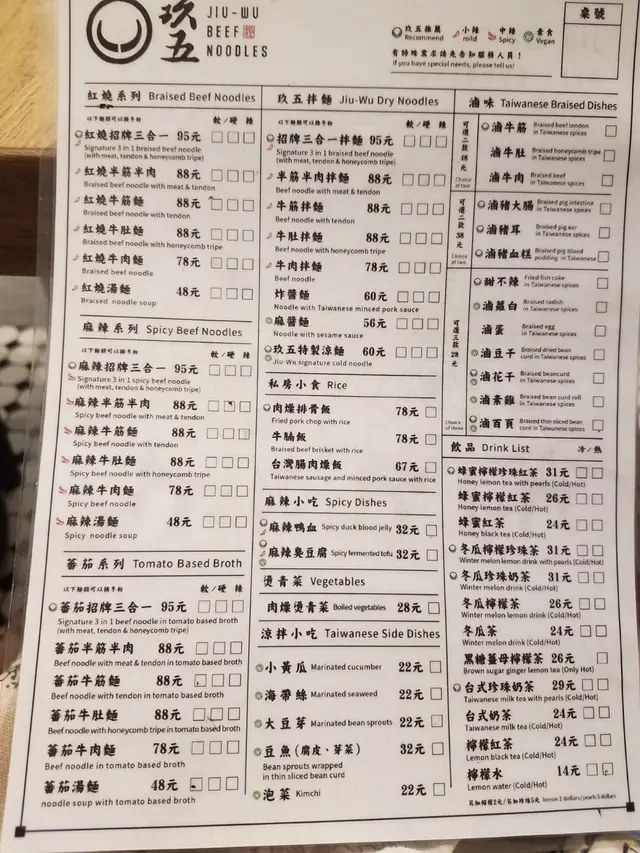 玖五
JIU-WU
BEEF
NOODLES
玖五推薦 Recommend
小辣 mild
中辣 Spicy
素食 Vegan
有特殊需求請先告知服務人員!
If you have special needs, please tell us!
桌號
紅燒系列 Braised Beef Noodles
以下麵類可以換冬粉 軟/硬 辣
紅燒招牌三合一 95元
Signature 3 in 1 braised beef noodle
(with meat, tendon & honeycomb tripe)
紅燒半筋半肉 88元
Braised beef noodle with meat & tendon
紅燒牛筋麵 88元
Braised beef noodle with tendon
紅燒牛肚麵 88元
Braised beef noodle with honeycomb tripe
紅燒牛肉麵 78元
Braised beef noodle
紅燒湯麵 48元
Braised noodle soup
麻辣系列 Spicy Beef Noodles
以下麵類可以換冬粉 軟/硬 辣
麻辣招牌三合一 95元
Signature 3 in 1 spicy beef noodle
(with meat, tendon & honeycomb tripe)
麻辣半筋半肉 88元
Spicy beef noodle with meat & tendon
麻辣牛筋麵 88元
Spicy beef noodle with tendon
麻辣牛肚麵 88元
Spicy beef noodle with honeycomb tripe
麻辣牛肉麵 78元
Spicy beef noodle
麻辣湯麵 48元
Spicy noodle soup
蕃茄系列 Tomato Based Broth
以下麵類可以換冬粉 軟/硬 辣
蕃茄招牌三合一 95元
Signature 3 in 1 beef noodle in tomato based broth
(with meat, tendon & honeycomb tripe)
蕃茄半筋半肉 88元
Beef noodle with meat & tendon in tomato based broth
蕃茄牛筋麵 88元
Beef noodle with tendon in tomato based broth
蕃茄牛肚麵 88元
Beef noodle with honeycomb tripe in tomato based broth
蕃茄牛肉麵 78元
Beef noodle in tomato based broth
蕃茄湯麵 48元
noodle soup with tomato based broth
玖五拌麵 Jiu-Wu Dry Noodles
以下麵類可以換冬粉 軟/硬 辣
招牌三合一拌麵 95元
Signature 3 in 1 braised beef noodle
(with meat, tendon & honeycomb tripe)
半筋半肉拌麵 88元
Beef noodle with meat & tendon
牛筋拌麵 88元
Beef noodle with tendon
牛肚拌麵 88元
Beef noodle with honeycomb tripe
牛肉拌麵 78元
Beef noodle
炸醬麵 60元
Noodle with Taiwanese minced pork sauce
麻醬麵 56元
Noodle with sesame sauce
玖五特製涼麵 60元
Jiu-Wu signature cold noodle
私房小食 Rice
肉燥排骨飯 78元
Fried pork chop with rice
牛腩飯 78元
Braised beef brisket with rice
台灣腸肉燥飯 67元
Taiwanese sausage and minced pork with rice
麻辣小吃 Spicy Dishes
麻辣鴨血 Spicy duck blood jelly 32元
麻辣臭豆腐 Spicy fermented tofu 32元
燙青菜 Vegetables
肉燥燙青菜 Boiled vegetables 28元
涼拌小吃 Taiwanese Side Dishes
小黃瓜 Marinated cucumber 22元
海帶絲 Marinated seaweed 22元
大豆芽 Marinated bean sprouts 22元
豆魚(腐皮、芽菜) 32元
Bean sprouts wrapped
in thin sliced bean curd
泡菜 Kimchi 22元
滷味 Taiwanese Braised Dishes
可選二款48元 Choice of two
滷牛筋 Braised beef tendon in Taiwanese spices
滷牛肚 Braised honeycomb tripe in Taiwanese spices
滷牛肉 Braised beef in Taiwanese spices
可選二款38元 Choice of two
滷豬大腸 Braised pig intestine in Taiwanese spices
滷豬耳 Braised pig ear in Taiwanese spices
滷豬血糕 Braised pig blood pudding in Taiwanese spices
可選三款28元 Choice of three
甜不辣 Fried fish cake in Taiwanese spices
滷蘿白 Braised radish in Taiwanese spices
滷蛋 Braised egg in Taiwanese spices
滷豆干 Braised dried bean curd in Taiwanese spices
滷花干 Braised beancurd in Taiwanese spices
滷素雞 Braised bean curd roll in Taiwanese spices
滷百頁 Braised thin sliced bean curd in Taiwanese spices
飲品 Drink List 冷/熱
蜂蜜檸檬珍珠紅茶 31元
Honey lemon tea with pearls (Cold/Hot)
蜂蜜檸檬紅茶 26元
Honey lemon tea (Cold/Hot)
蜂蜜紅茶 24元
Honey black tea (Cold/Hot)
冬瓜檸檬珍珠茶 31元
Winter melon lemon drink with pearls (Cold/Hot)
冬瓜珍珠奶茶 31元
Winter melon drink (Cold/Hot)
冬瓜檸檬茶 26元
Winter melon lemon drink (Cold/Hot)
冬瓜茶 24元
Winter melon drink (Cold/Hot)
黑糖薑母檸檬茶 26元
Brown sugar ginger lemon tea (Only Hot)
台式珍珠奶茶 29元
Taiwanese milk tea with pearls (Cold/Hot)
台式奶茶 24元
Taiwanese milk tea (Cold/Hot)
檸檬紅茶 24元
Lemon black tea (Cold/Hot)
檸檬水 14元
Lemon water (Cold/Hot)
另加檸檬2元/另加珍珠5元 lemon 2 dollars/pearls 5 dollars